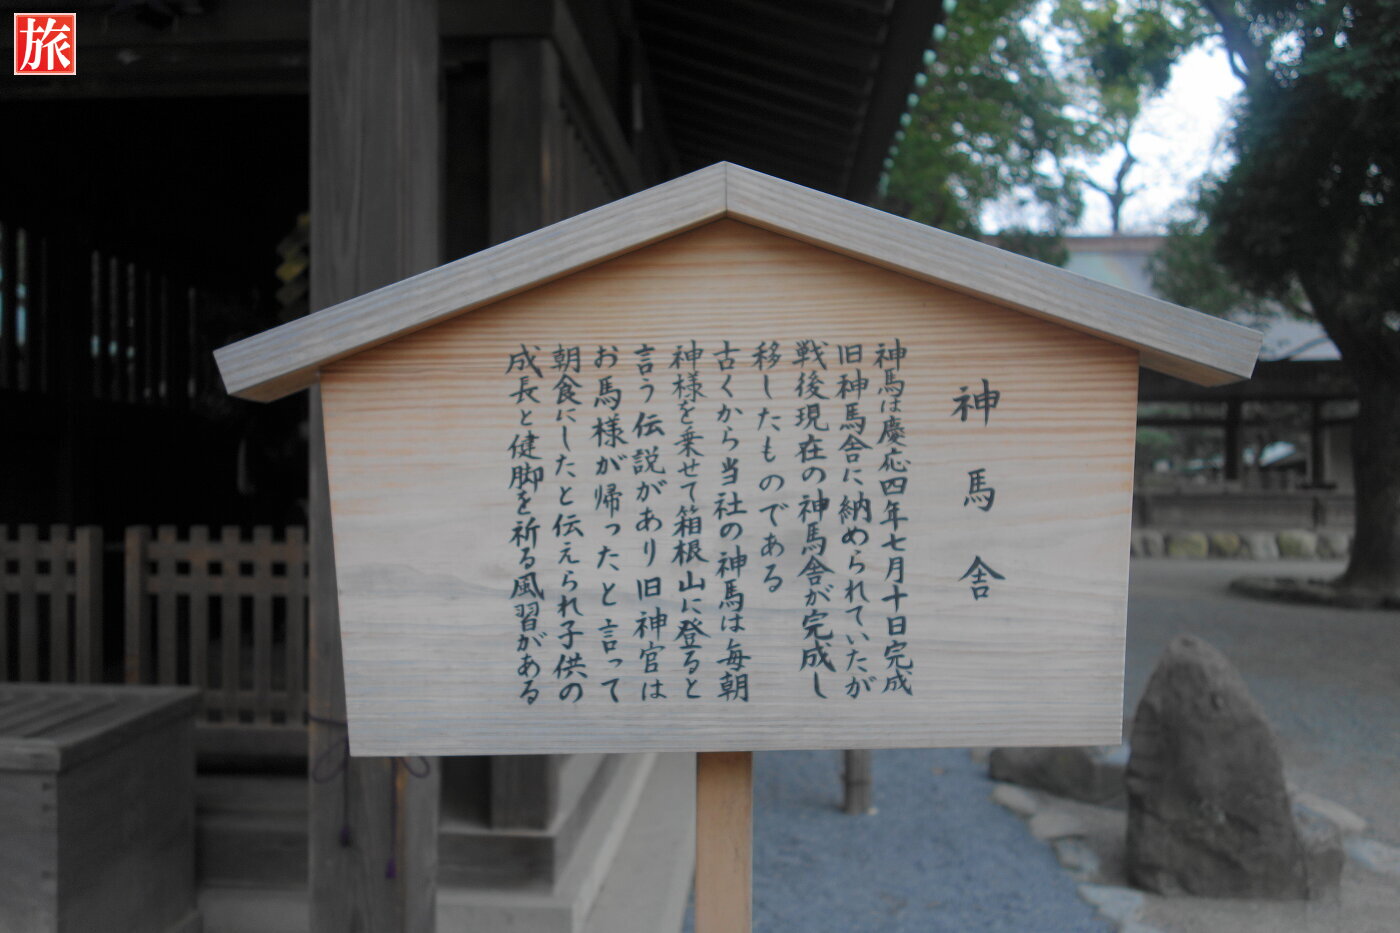 旅
神馬舎
神馬は慶応四年七月十日完成
旧神馬舎に納められていたが
戦後現在の神馬舎が完成し
移したものである
古くから当社の神馬は毎朝
神様を乗せて箱根山に登ると
言う伝説があり旧神官は
お馬様が帰ったと言って
朝食にしたと伝えられ子供の
成長と健脚を祈る風習がある